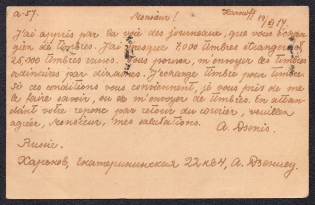 a-57.
Monsieur!
J'ai appris par la voie des journeaux, que vous
de timbres. J'ai presque 7.000 timbres étrangers,
25,000 timbres russes. Vous pouvez m'envoyer des timbres
ordinaires par dizaines. J'echange timbre pour timbre.
Si ces conditions vous conviennent, je vous prie de me
le faire savoir, ou de m'envoyer de timbres. En atten-
dant votre reponse par retour du courier, veuillez
agréer, Monsieur, mes salutations.
A. Denis.
Russie.
Харьков, Екатерининская 22 кв 4, А.